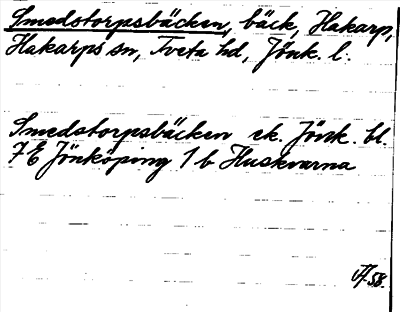 Smedstorpsbäcken, bäck, Hakarp,
Hakarps sn, Tveta hd, Jönk. l.
Smedstorpsbäcken ek. Jönk. bl.
7 E Jönköping 1 b Huskvarna
58.